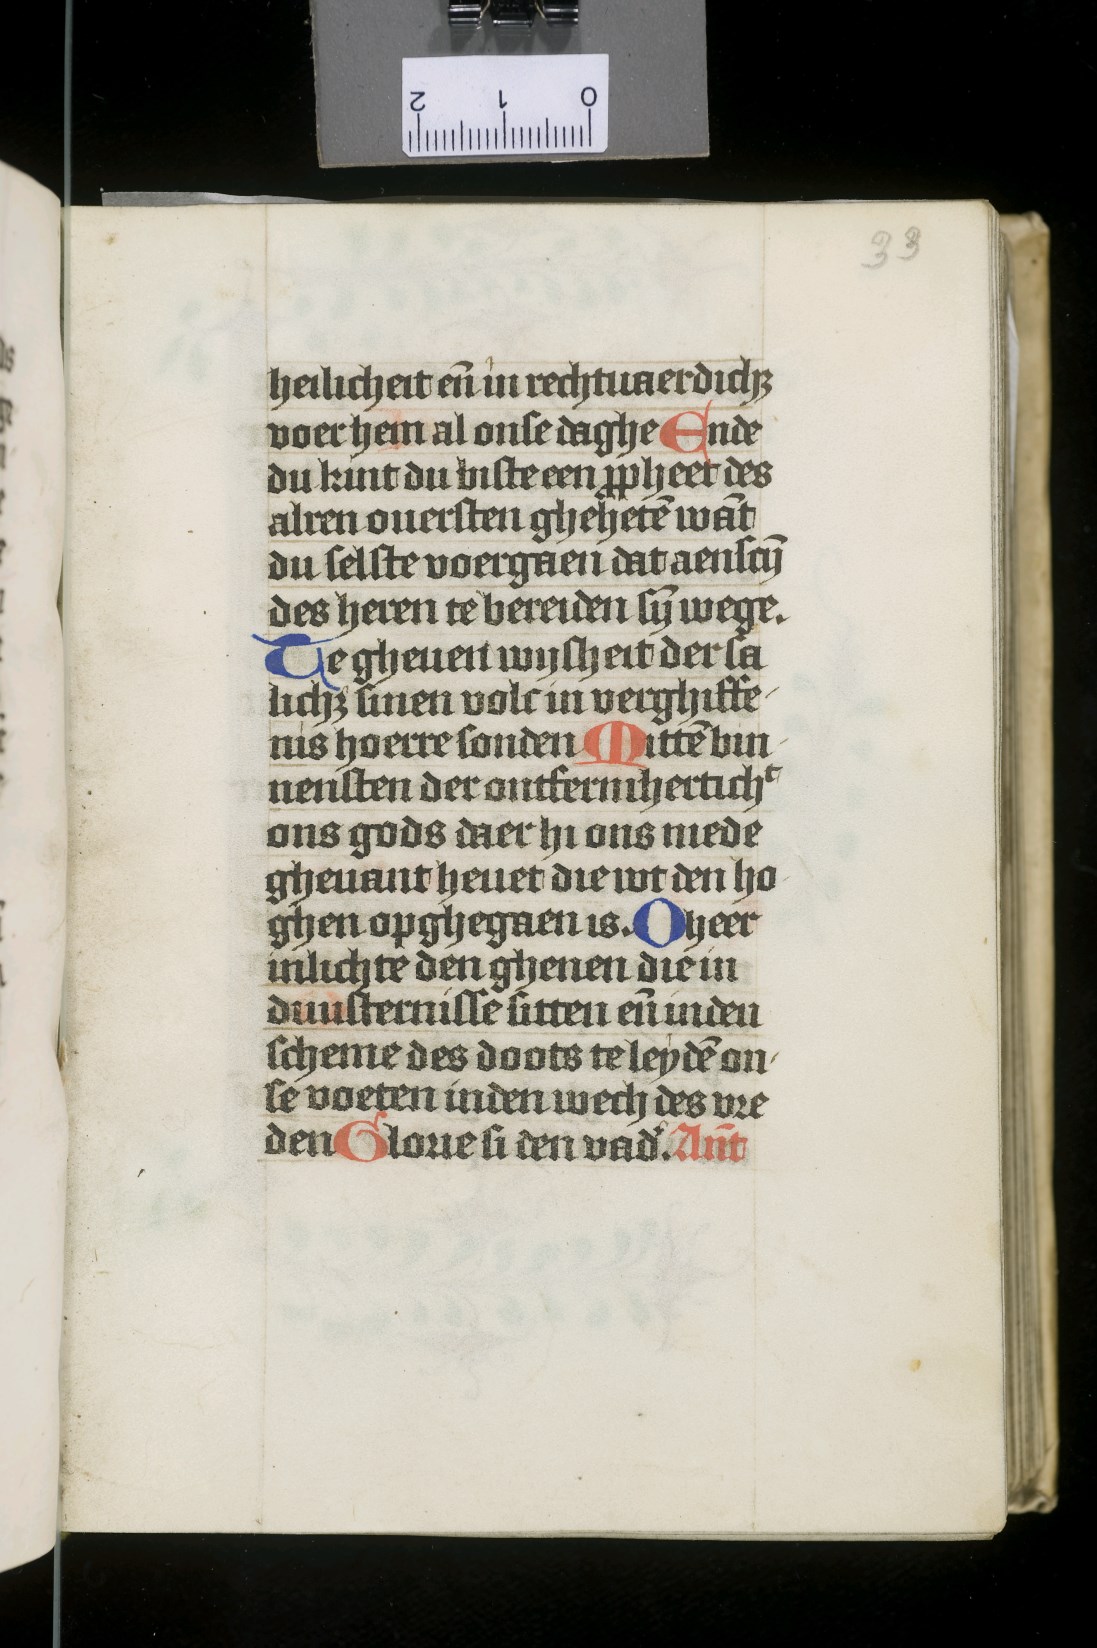 33
heilicheit eñ in rechtuaerdichꝫ
voer hem al onse daghe Ende
du kint du biste een ꝓpheet des
alren ouersten ghehetē wāt
du selste voergaen dat aenscȳ
des heren te bereiden sȳ wege.
Te gheuen wijsheit der sa
lichꝫ sinen volc in verghiffe-
nis hoerre sonden Mittē bin-
nensten der ontfermhertichᵗ
ons gods daer hi ons mede
gheuant heuet die wt den ho
ghen opghegaen is. O heer
inlichte den ghenen die in
duusternisse sitten eñ inden
scheme des doots te leydē on-
se voeten inden wech des vre
den Glorie si den vad'. Ant̄
2 1 0